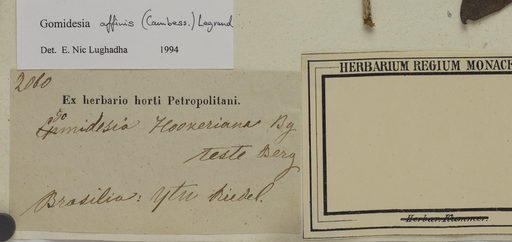 Gomidesia affinis (Cambess.) Legrand
Det. E. Nic Lughadha 1994
2060
Ex herbario horti Petropolitani.
Gomidesia Hookeriana Bg
teste Berg
Brasilia: Ytu Riedel.
HERBARIUM REGIUM MONACE
Herbar. Kummer.